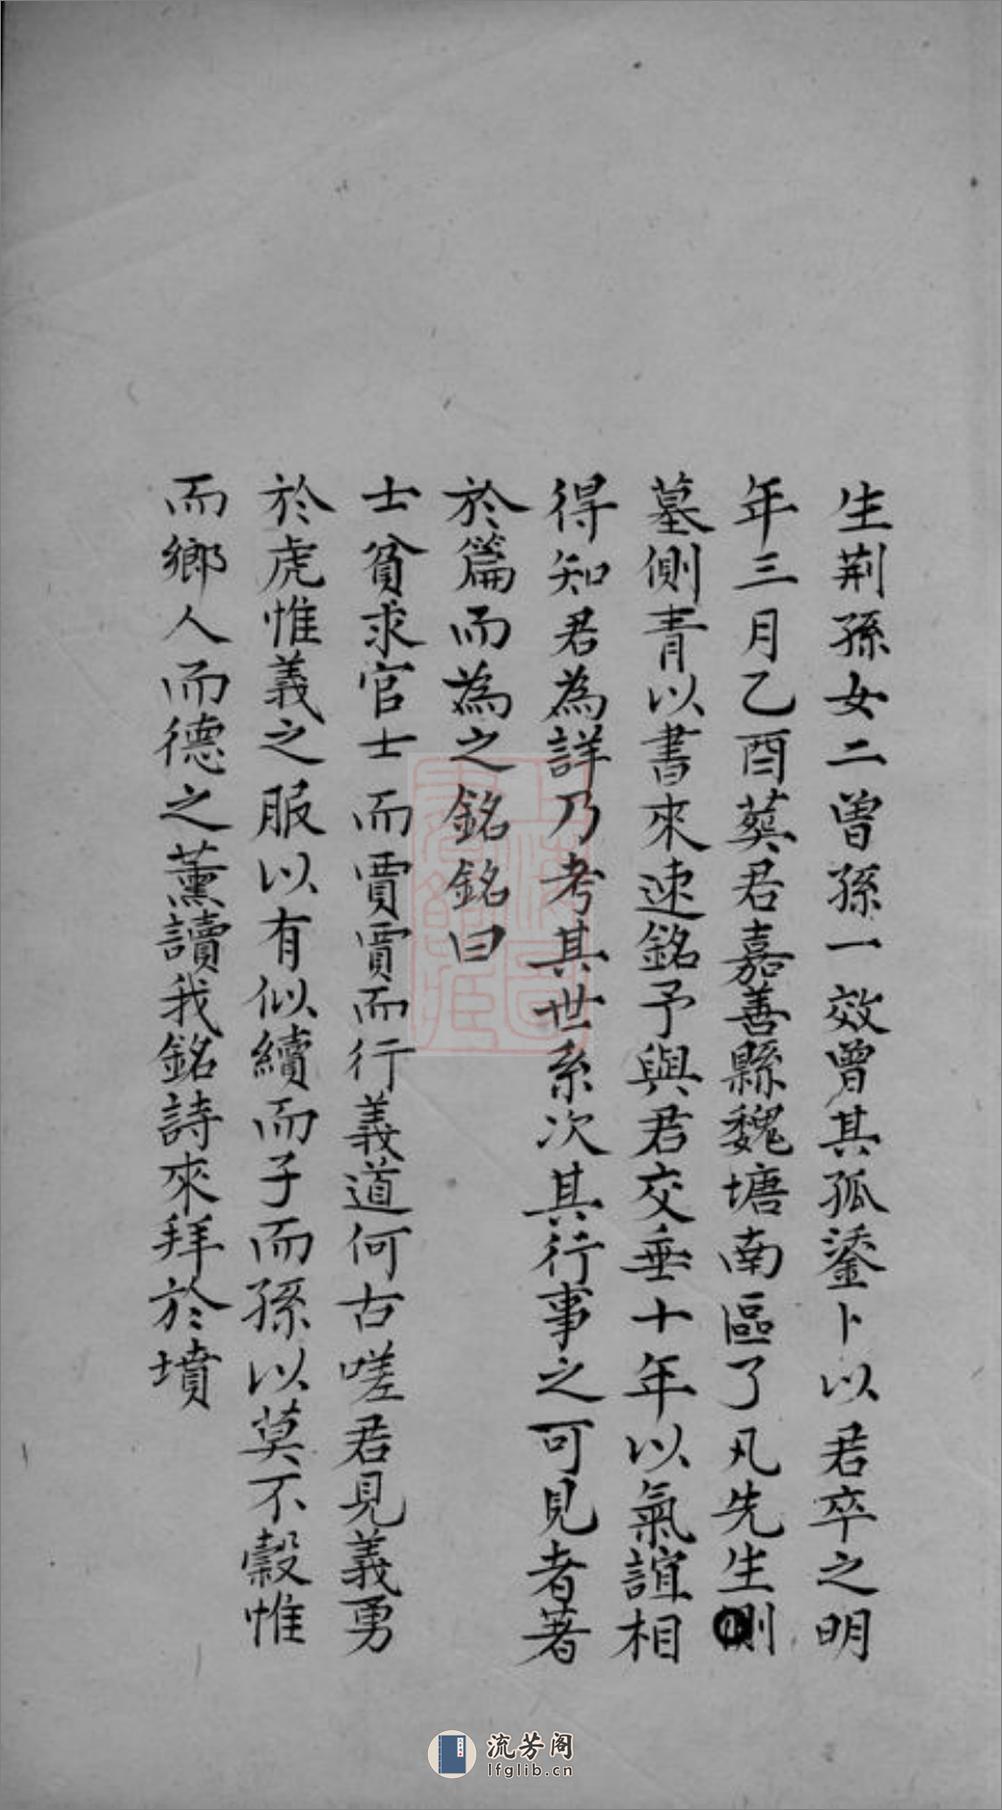 生荆孫女二曾孫一效曾其孤鋈卜以君卒之明
年三月乙酉葬君嘉善縣魏塘南區了凡先生側
墓側青以書來速銘予與君交垂十年以氣誼相
得知君為詳乃考其世系次其行事之可見者著
於篇而為之銘銘曰
士貧求官士而賈賈而行義道何古嗟君見義勇
於虎惟義之服以有似續而子而孫以莫不穀惟
而鄉人而德之薰讀我銘詩來拜於墳
流芳阁
lfglib.cn